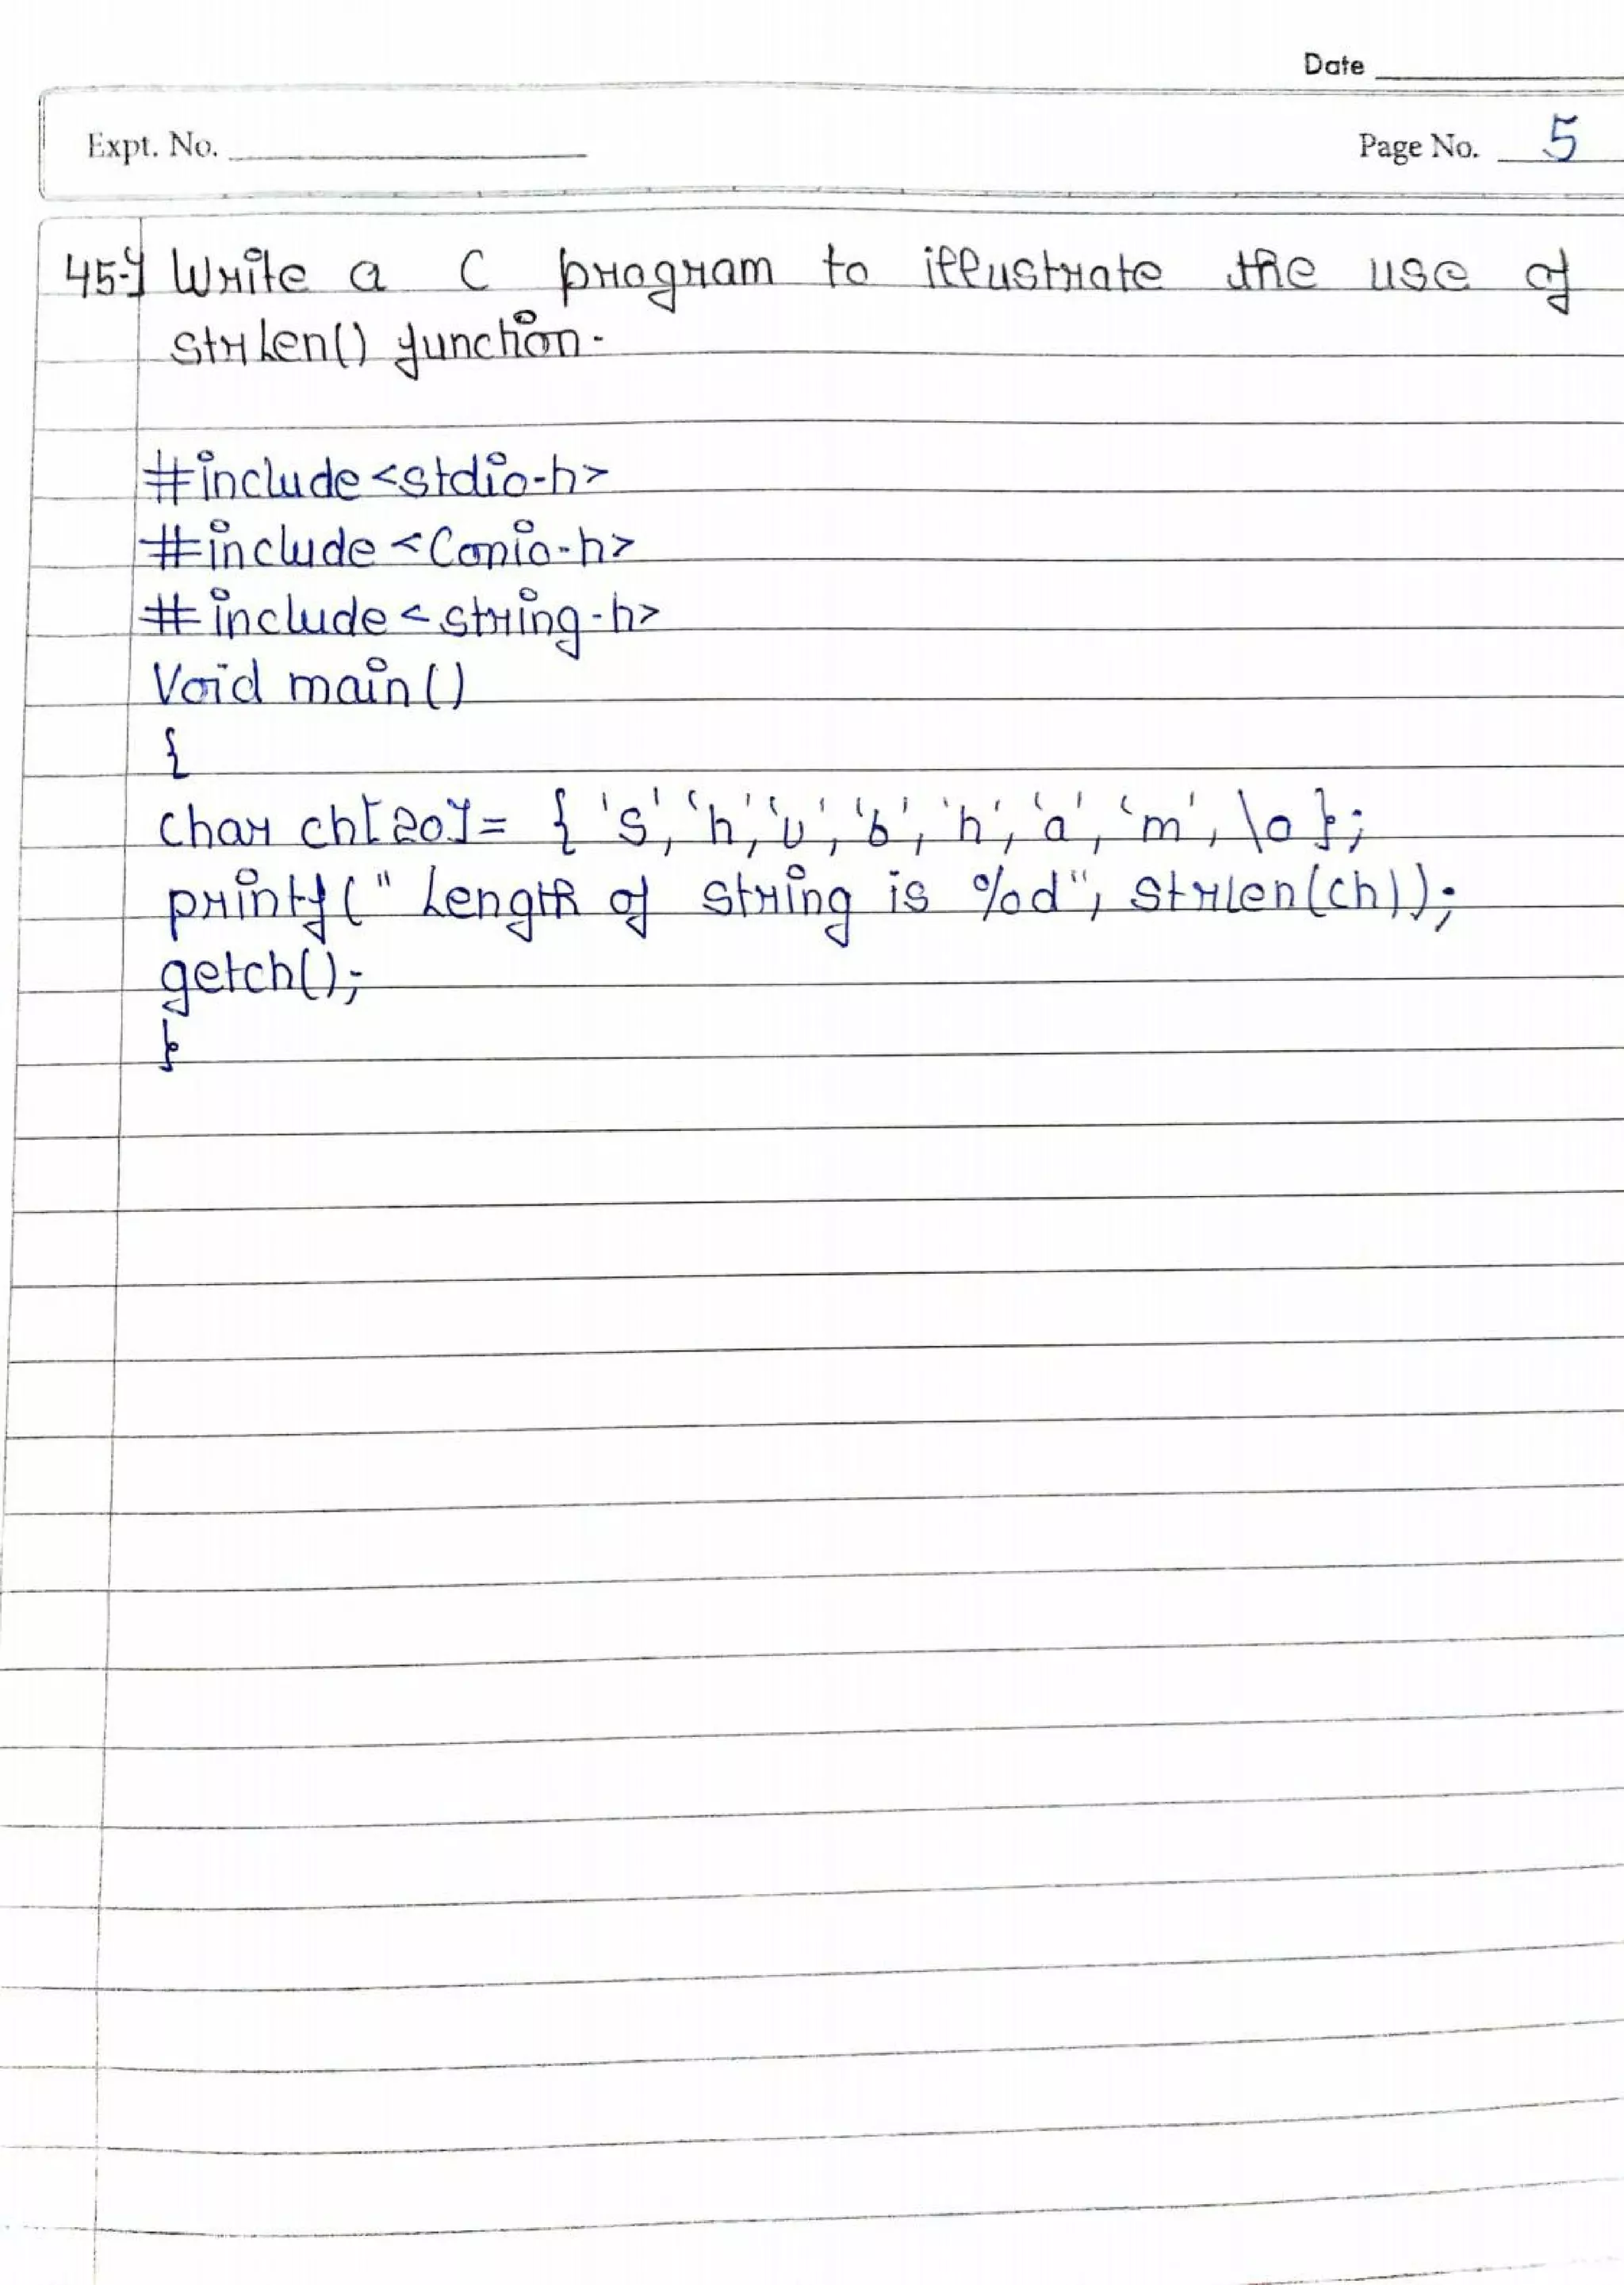 Date
Expt. No.
Page No. 5
45-] Write a C program to illustrate the use of
strlen() function.
#include<stdio.h>
#include<Conio.h>
#include<string.h>
Void main()
{
char ch[20]= { 's', 'h', 'u', 'b', 'h', 'a', 'm', \0 };
printf(" Length of string is %d", strlen(ch));
getch();
}